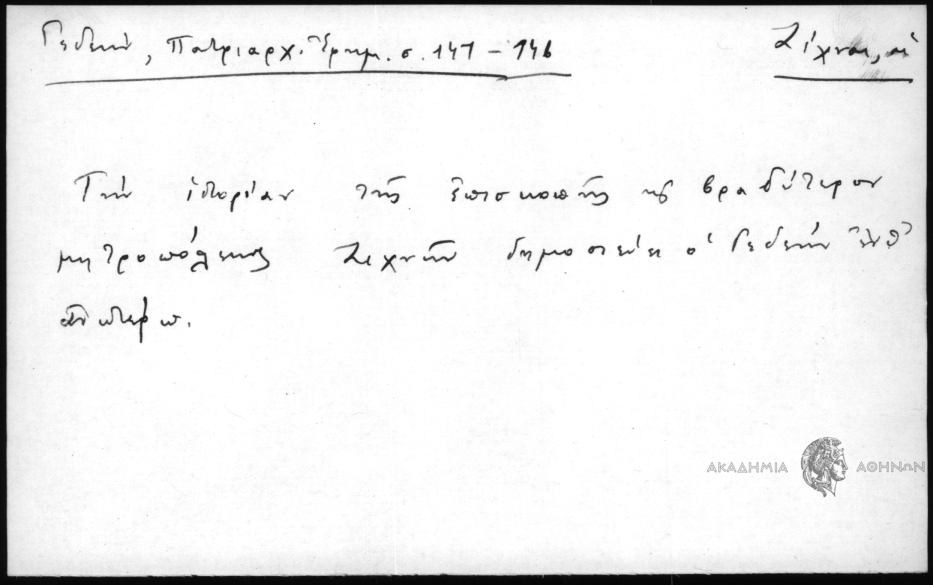 Γεδεών, Πατριαρχ. Ἐφημ. σ. 141 – 146
Ζίχναι, αἱ
Τὴν ἱστορίαν τῆς ἐπισκοπῆς κ βραδύτερον
μητροπόλεως Ζιχνῶν δημοσιεύει ὁ Γεδεὼν
ἀνωτέρω.
ΑΚΑΔΗΜΙΑ ΑΘΗΝΩΝ